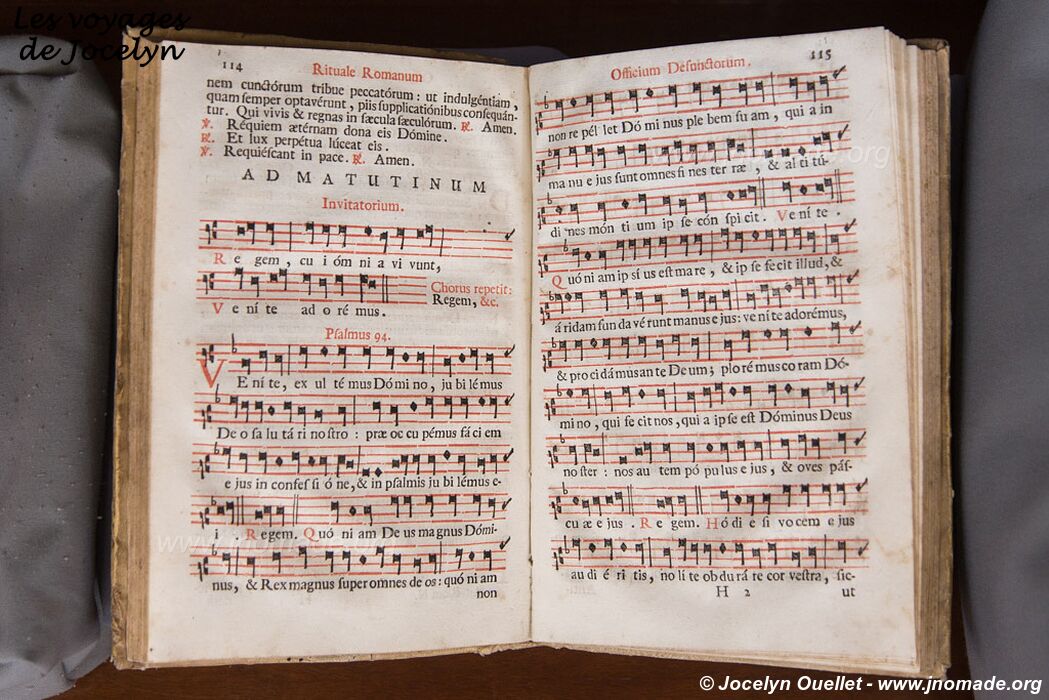 Les voyages
de Jocelyn
114
Rituale Romanum
nem cunctórum tribue peccatórum : ut indulgéntiam ,
quam semper optavérunt, piis supplicatiónibus consequán-
tur. Qui vivis & regnas in sæcula sæculórum. ℟. Amen.
℣. Réquiem ætérnam dona eis Dómine.
℟. Et lux perpétua lúceat eis.
℣. Requiéscant in pace. ℟. Amen.
AD MATUTINUM
Invitatorium.
Re gem , cu i óm ni a vi vunt,
Chorus repetit:
Regem, &c.
Vení te ad o ré mus.
Psalmus 94.
VE ní te, ex ul té mus Dó mi no, ju bi lé mus
De o sa lu tá ri no stro : præ oc cu pémus fá ci em
e jus in confes si ó ne, & in psalmis ju bi lémus e-
i . Regem. Quó ni am De us magnus Dómi-
nus, & Rex magnus super omnes de os : quó ni am
non
Officium Defunctorum.
115
non re pél let Dó mi nus ple bem su am , qui a in
ma nu e jus sunt omnes fi nes ter ræ , & al ti tú-
di nes món ti um ip se cón spi cit. Ve ní te .
Quó ni am ip sí us est ma re , & ip se fe cit illud, &
á ridam fun da vé runt manus e jus : ve ní te adorémus,
& pro ci dá mus an te De um ; plo ré mus co ram Dó-
mi no , qui fe cit nos , qui a ip se est Dóminus Deus
no ster : nos au tem pó pu lus e jus , & oves pás-
cu æ e jus . Re gem. Hó di e si vo cem e jus
au di é ri tis , no lí te ob du rá re cor vestra , sic-
H 2
ut
www.jnomade.org
© Jocelyn Ouellet - www.jnomade.org